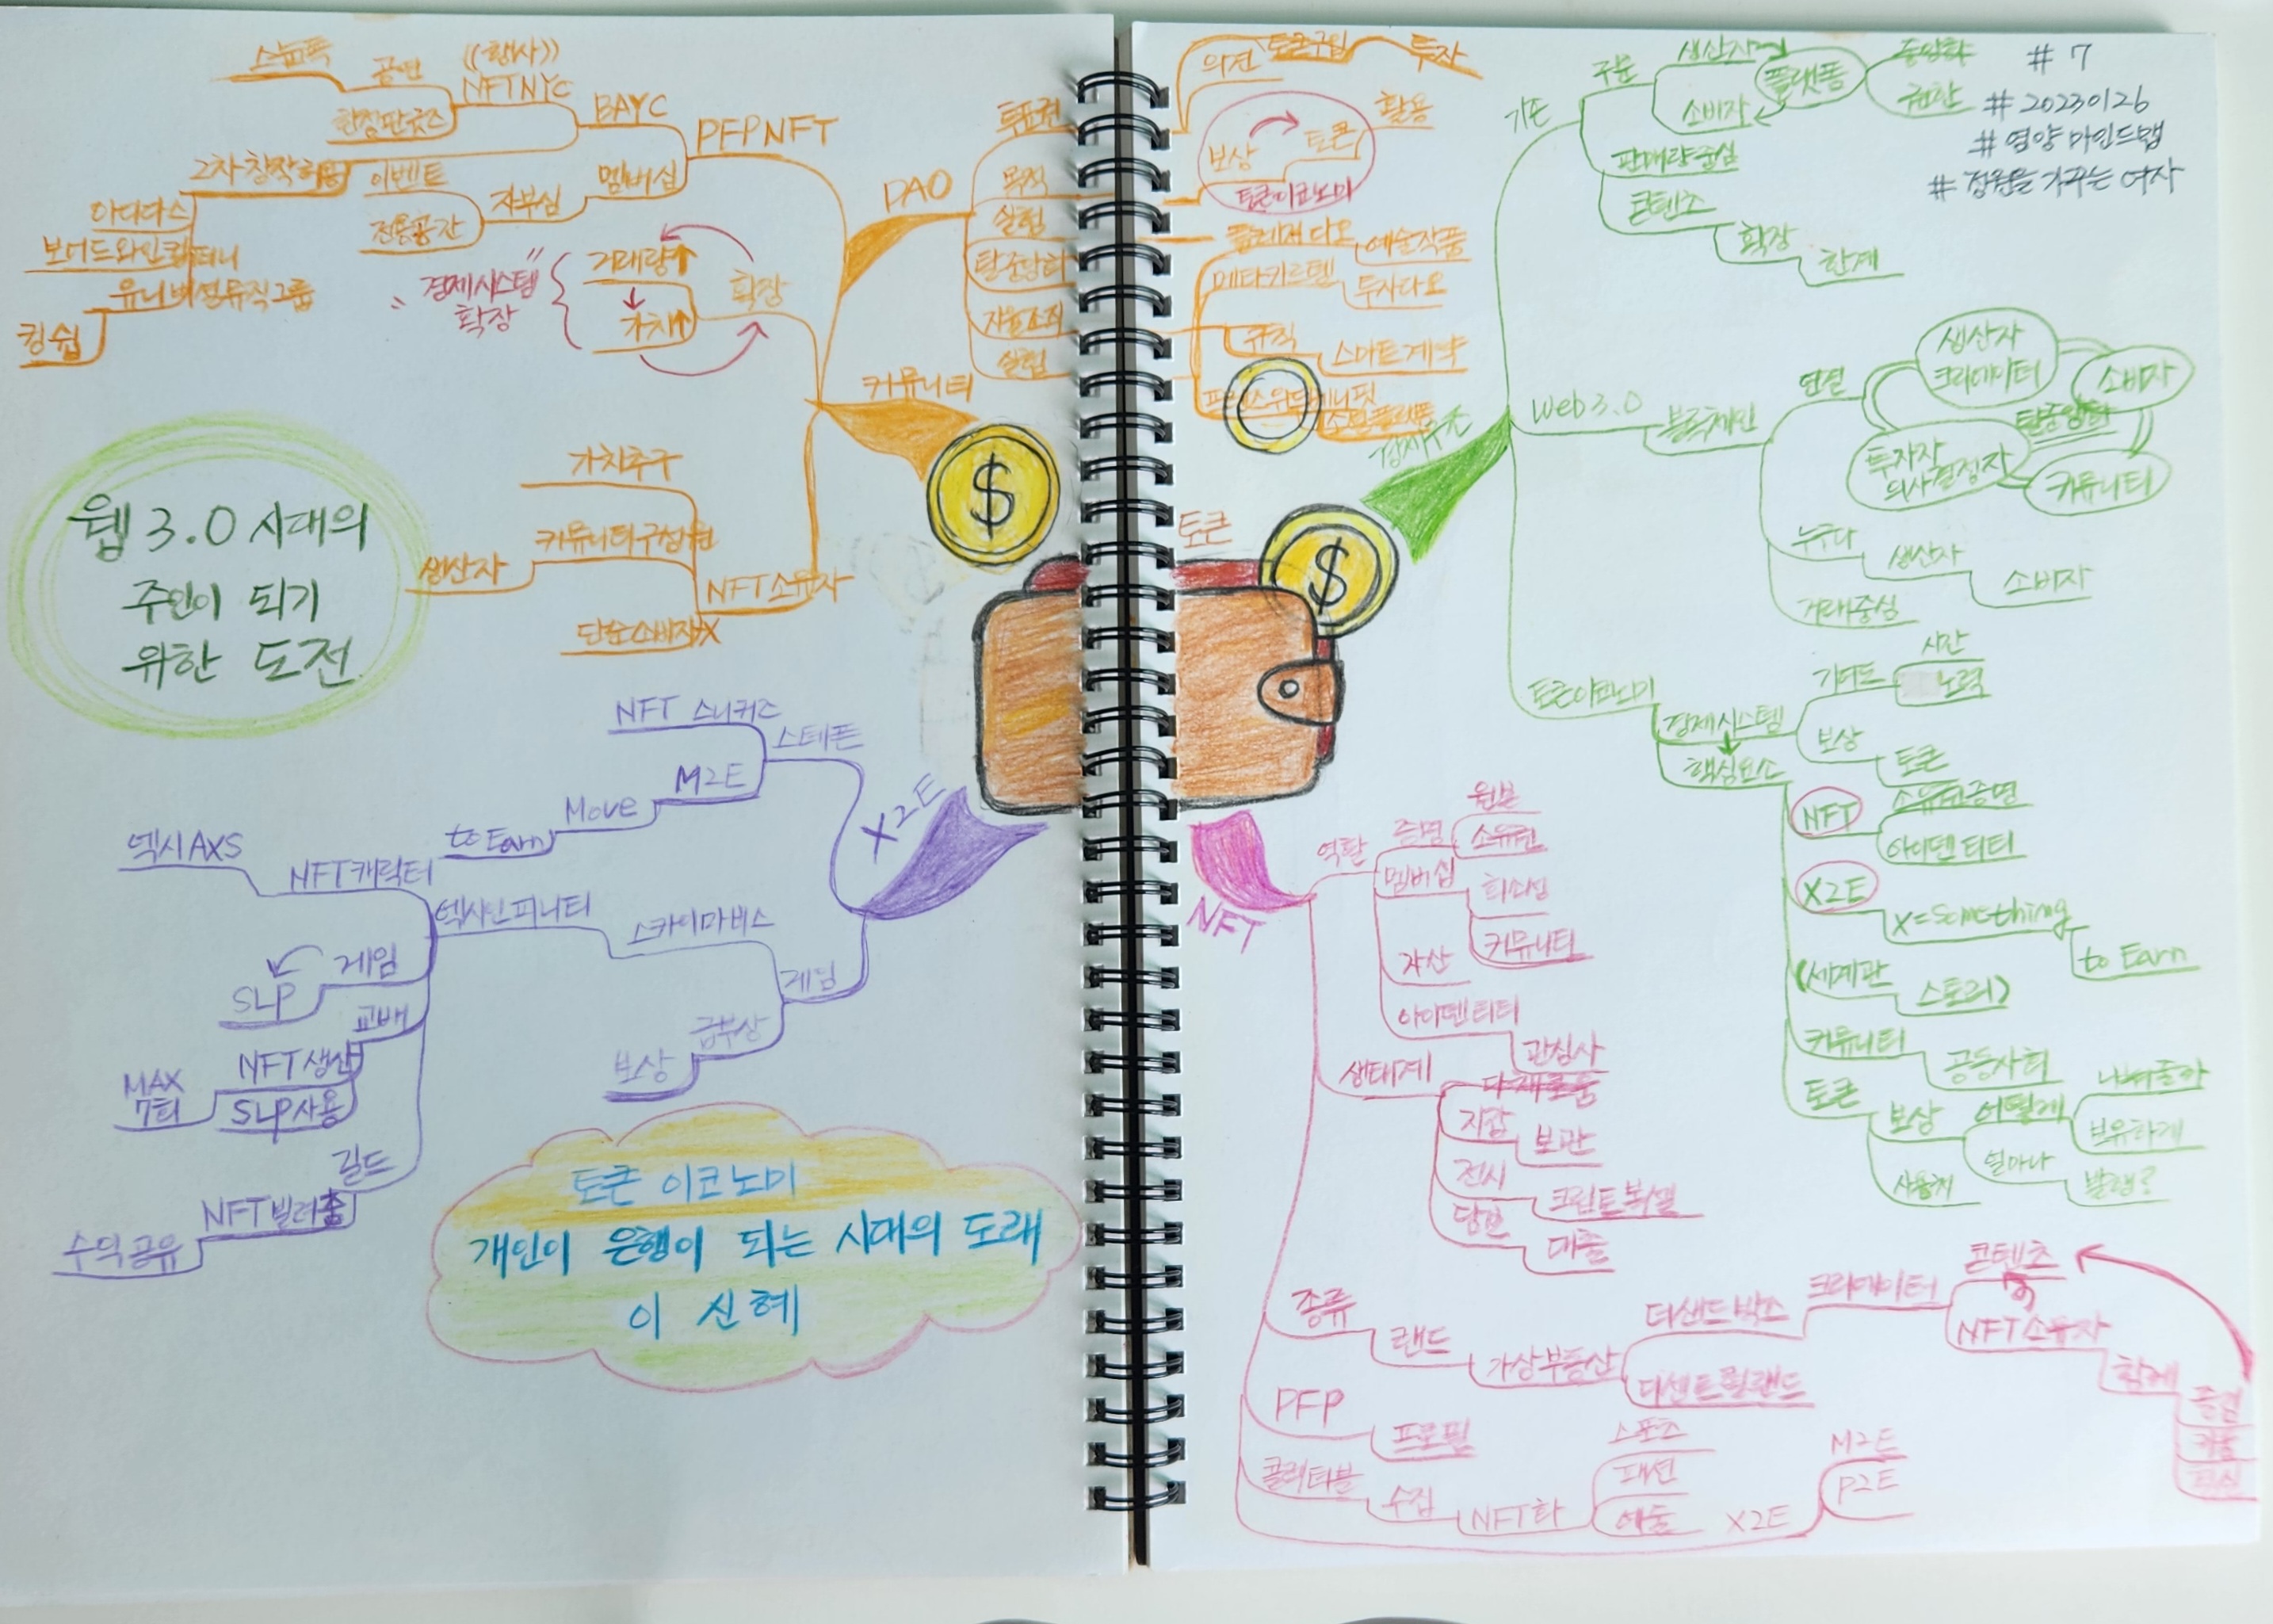 # 7
# 20230126
# 영양 마인드맵
# 정원을 가꾸는 여자
웹 3.0 시대의
주인이 되기
위한 도전
토큰 이코노미
개인이 은행이 되는 시대의 도래
이 신혜
토큰
커뮤니티
PFPNFT
BAYC
((행사))
NFTNYC
공연
스눕독
한정판굿즈
2차 창작허용
아디다스
유니버셜뮤직그룹
킹쉽
멤버십
자부심
이벤트
전용공간
확장
거래량↑
가치↑
"경제시스템
확장"
NFT소유자
가치추구
커뮤니티구성원
생산자
단순소비자X
DAO
투표권
의견
토큰구입
투자
목적
보상
토큰
활용
토큰이코노미
설립
플레져다오
예술작품
탈중앙화
메타카르텔
투자다오
자율조직
규칙
스마트계약
설립
X2E
스테픈
NFT 스니커즈
M2E
Move
to Earn
게임
스카이마비스
엑시인피니티
NFT캐릭터
엑시AXS
게임
SLP
교배
NFT생산
SLP사용
MAX
7회
길드
NFT빌려줌
수익공유
급부상
보상
기존
주문
생산자
소비자
플랫폼
중앙화
권한
판매량중심
콘텐츠
확장
한계
Web 3.0
블록체인
연결
생산자
크리에이터
소비자
탈중앙화
투자자
의사결정자
커뮤니티
누구나
생산자
소비자
거래중심
토큰이코노미
경제시스템
기여도
시간
노력
보상
토큰
핵심요소
NFT
소유권증명
아이덴티티
X2E
X=Something
to Earn
(세계관
스토리)
커뮤니티
공동사회
토큰
보상
어떻게
나눠줄까
보유하게
얼마나
발행?
사용처
NFT
역할
증명
원본
소유권
멤버십
희소성
커뮤니티
자산
아이덴티티
관심사
생태계
지갑
보관
전시
담보
대출
종류
랜드
가상부동산
더샌드박스
크리에이터
콘텐츠
NFT소유자
함께
디센트럴랜드
PFP
프로필
콜렉터블
수집
NFT화
스포츠
패션
예술
X2E
M2E
P2E